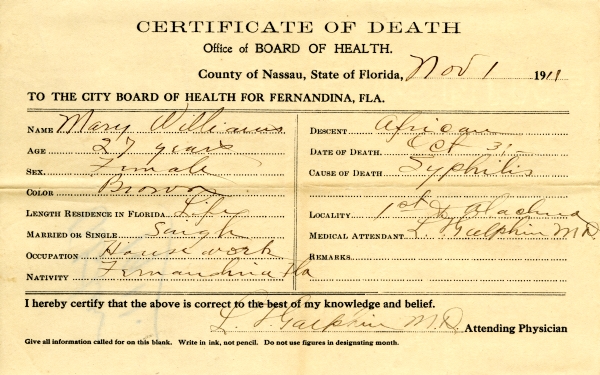 CERTIFICATE OF DEATH
Office of BOARD OF HEALTH.
County of Nassau, State of Florida, Nov 1 1911
TO THE CITY BOARD OF HEALTH FOR FERNANDINA, FLA.
NAME Mary Williams
AGE 27 years
SEX. Female
COLOR Brown
LENGTH RESIDENCE IN FLORIDA Life
MARRIED OR SINGLE Singh
OCCUPATION House work
NATIVITY Fernandina Fla
DESCENT African
DATE OF DEATH. Oct 31
CAUSE OF DEATH Syphilis
LOCALITY 1st & Alachua
MEDICAL ATTENDANT L. Galphin M.D.
REMARKS
I hereby certify that the above is correct to the best of my knowledge and belief.
L. Galphin M.D. Attending Physician
Give all information called for on this blank. Write in ink, not pencil. Do not use figures in designating month.